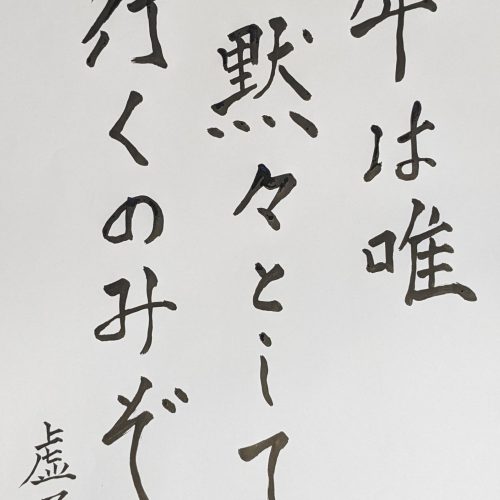 年は唯
黙々として
行くのみぞ
虚子